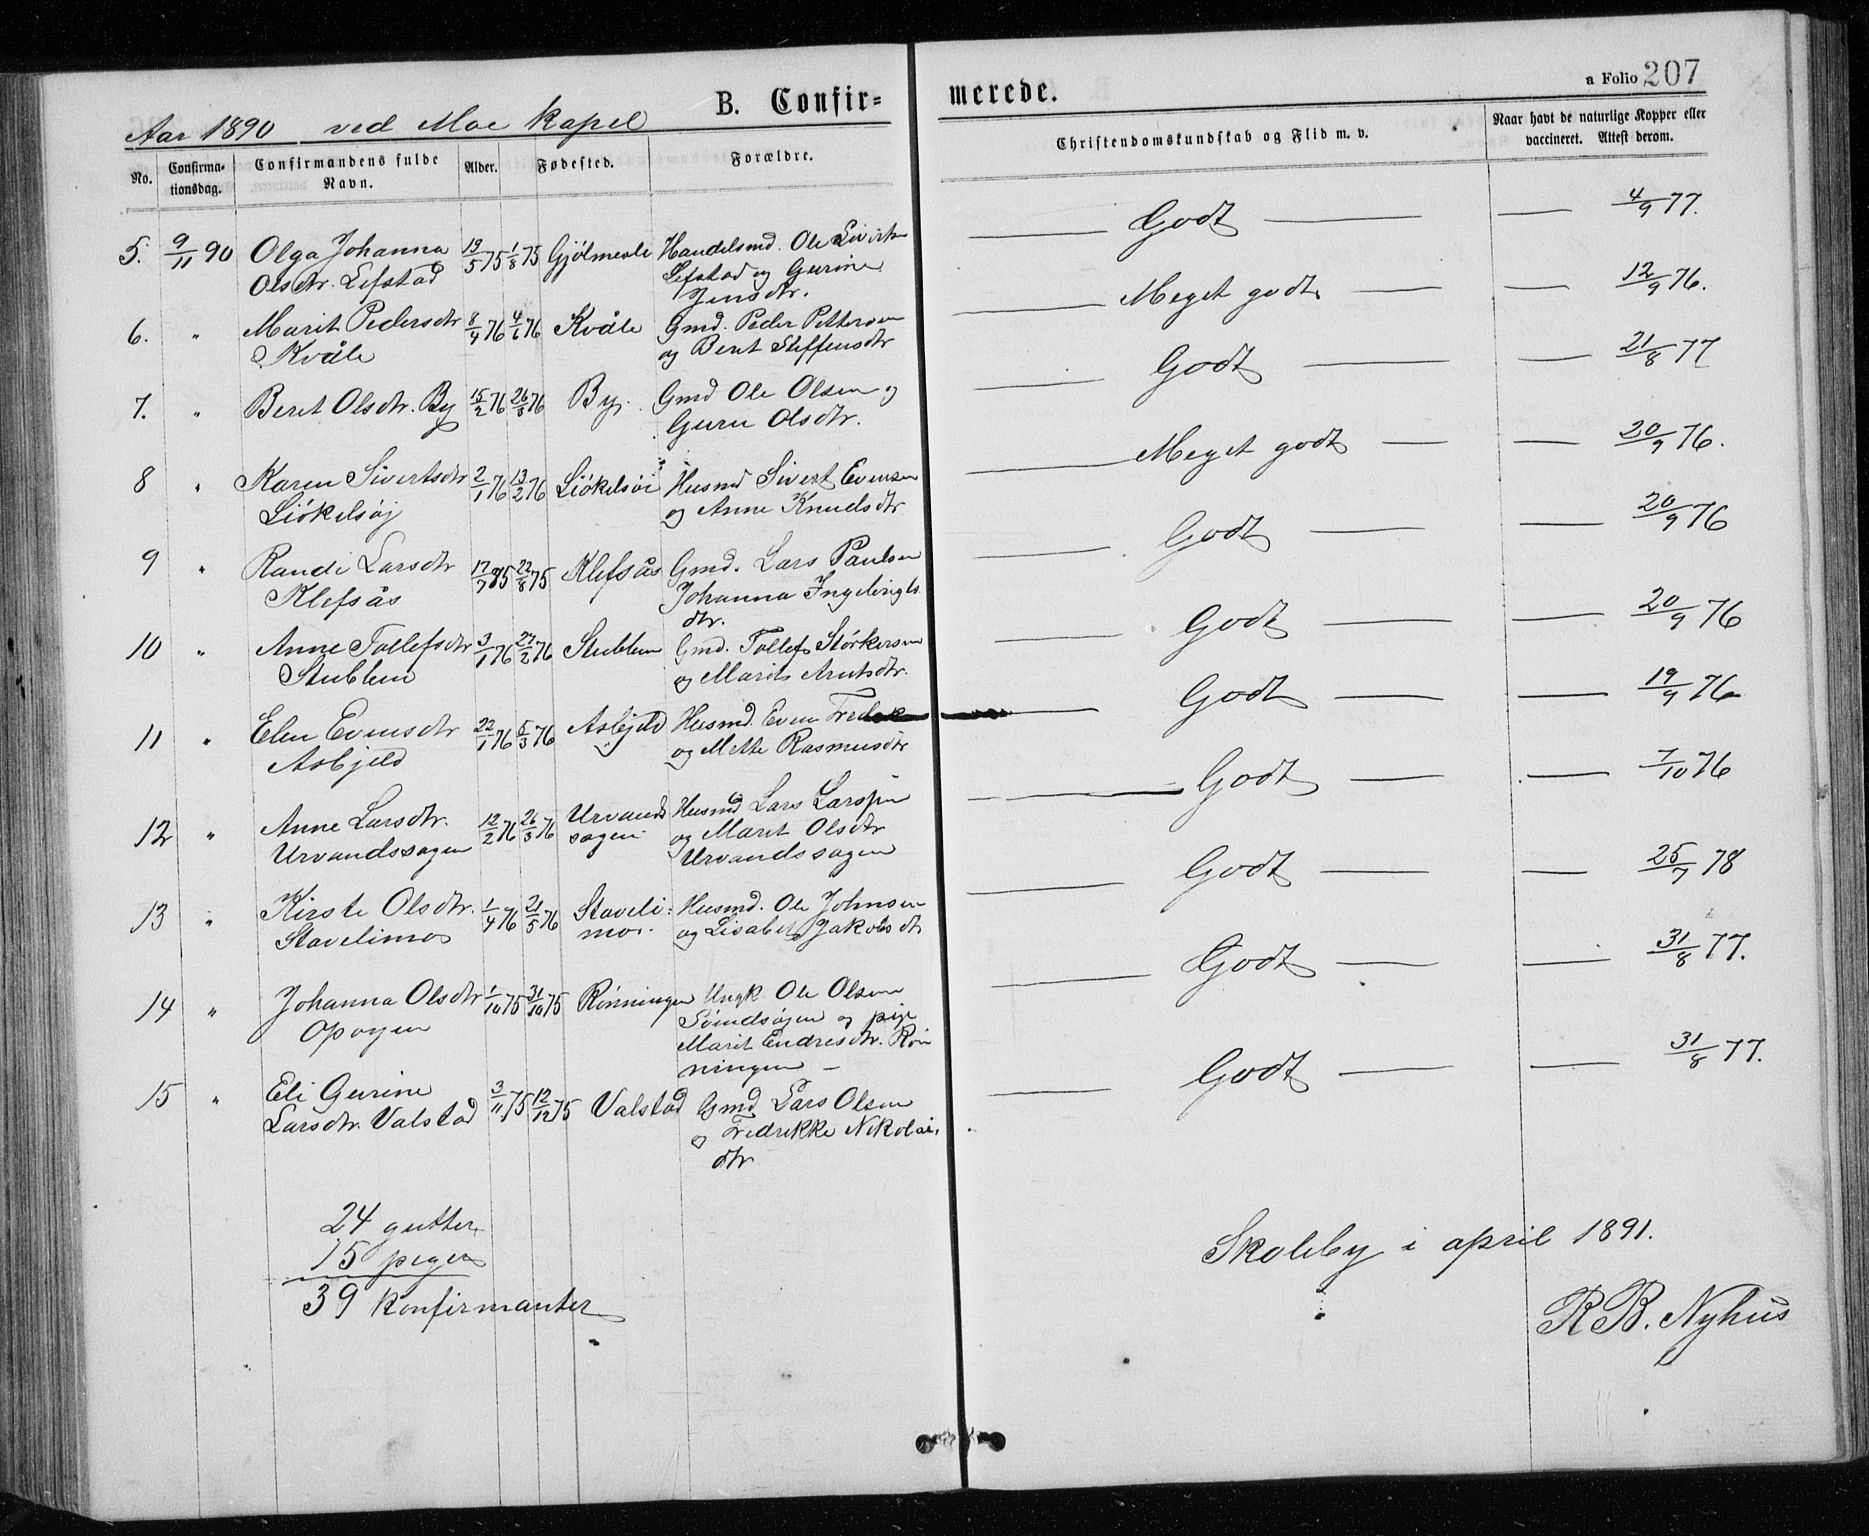 a Folio 207
B. Confir=
merede.
Aar 1890 ved Moe kapel
No.
Confirma-
tionsdag.
Confirmandens fulde
Navn.
Alder.
Fødested.
Forældre.
Christendomskundskab og Flid m. v.
Naar havt de naturlige Kopper eller
vaccineret. Attest derom.
5. 9/11 90 Olga Johanna 19/5 75 1/8 75 Gjølmesli Handelsmd. Ole Sivertsen
Olsdtr. Lefstad Lefstad og Gurine
Jensdtr.
Godt 4/9 77.
6. " Marit Pedersdtr 8/4 76 4/6 76 Kvåle Gmd. Peder Pettersen
Kvåle og Berit Steffensdtr
Meget godt 12/9 76.
7. " Beret Olsdtr. By 15/2 76 26/3 76 By. Gmd Ole Olsen og
Guru Olsdtr.
Godt 21/8 77
8 " Karen Sivertsdtr 2/1 76 13/2 76 Liøkelsøi Husmd Sivert Evensen
Liøkelsøj og Anne Knudsdtr
Meget godt 20/9 76.
9 " Randi Larsdtr 17/7 75 22/8 75 Klefsås Gmd. Lars Paulsen
Klefsås Johanna Ingebrigts
dtr.
Godt 20/9 76
10 " Anne Tollefsdtr 3/1 76 27/2 76 Stubben Gmd. Tollef Størkersen
Stubben og Marit Arntsdtr.
Godt 20/9 76
11 " Elen Evensdtr 22/1 76 5/3 76 Asbjeld Husmd. Even
Asbjeld og Mette Rasmusdtr
Godt 19/9 76
12 " Anne Larsdtr. 12/2 76 26/3 76 Urvands Husmd Lars Larssen
Urvandssagen sagen og Marit Olsdtr
Urvandssagen
Godt 7/10 76
13 " Kirste Olsdtr. 1/4 76 21/5 76 Staveli= Husmd. Ole Johnsen
Stavelimo mo. og Lisabet Jakobsdtr
Godt 25/7 78
14 " Johanna Olsdtr 1/10 75 31/10 75 Rønningen Ungk Ole Olsen
og pige
Marit Endresdtr. Røn
ningen
Godt 31/8 77.
15 " Eli Gurine 3/11 75 12/12 75 Valstad Gmd Lars Olsen
Larsdtr. Valstad og Fredrikke Nikolai
dtr
Godt 31/8 77.
24 gutter
15 piger
39 konfirmanter
Skoleby i april 1891.
R B. Nyhus